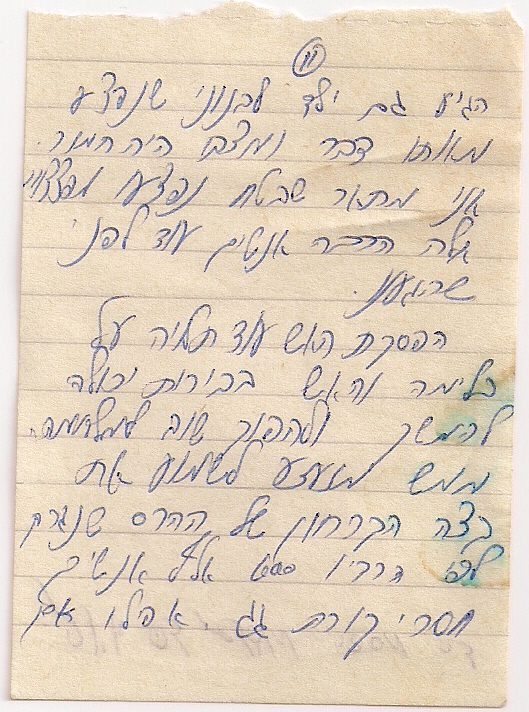 11
הגיע גם ילד לבנוני שנפצע
מאותו דבר ומצבו היה חמור.
אני מתאר שבטח נפצעו מפצצות
אלה הרבה אנשים עוד לפני
שהגענו.
הפסקת האש עוד תלויה על
בלימה והאש בבירות יכולה
להמשך ולהפוך שוב למלחמה.
ממש מזעזע לשמוע את
קצה הקרחון של ההרס שנגרם
לפי דבריו אלף אנשים
חסרי קורת גג. אפילו אם